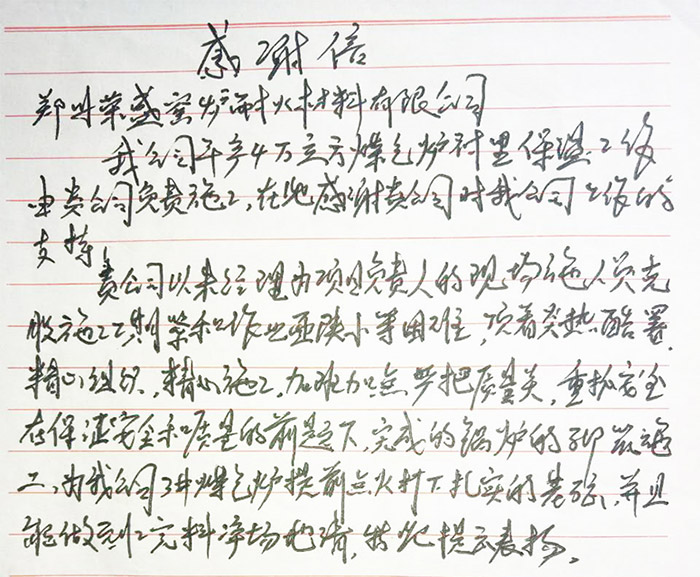 感谢信
郑州荣盛窑炉耐火材料有限公司
我公司年产4万立方煤气炉衬里保温工作
由贵公司负责施工,在此感谢贵公司对我公司工作的
支持!
贵公司以朱经理为项目负责人的现场施工人员克
服施工工期紧和作业面狭小等困难,顶着炎热酷署,
精心组织,精心施工,加班加点严把质量关,重抓安全
在保证安全和质量的前题下,完成的锅炉的砌筑施
工,为我公司煤气炉提前点火打下扎实的基础,并且
能做到工完料净场地清,特此提示表扬。